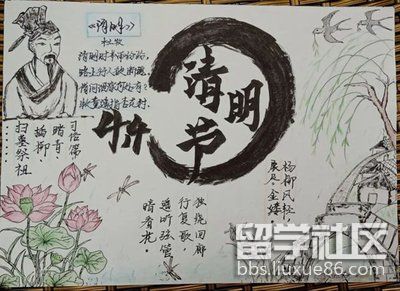 《清明》
杜牧
清明时节雨纷纷,
路上行人欲断魂。
借问酒家何处有?
牧童遥指杏花村。
清明
节
踏青·
插柳·
扫墓祭祖
独绕回廊
行复歇,
遥听弦管
暗看花。
杨柳风轻,
展尽 金缕
留学社区
bbs.liuxue86.com